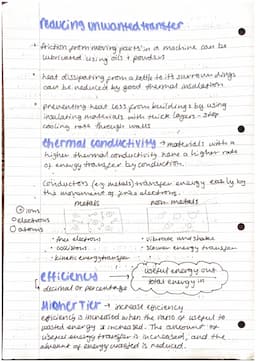 reducing unwanted transfer
• friction from moving parts in a machine can be
lubricated using oils + powders
• heat dissipating from a kettle to its surroundings
can be reduced by good thermal insulation
• preventing heat loss from buildings by using
insulating materials with thick layers - stop
cooling rate through walls
thermal conductivity → materials with a
higher thermal conductivity have a higher rate
of energy transfer by conduction.
conductors (eg metals) transfer energy easily by
the movement of free electrons.
metals non-metals
ions
electrons
atoms
• free electrons • vibrate and shake
• collisions • slower energy transfer
• kinetic energy transfer
efficiency useful energy out
↳ decimal or percentage total energy in
Higher Tier → increase efficiency
efficiency is increased when the ratio of useful to
wasted energy is increased. The amount of
useful energy transfer is increased, and the
amount of energy wasted is reduced.